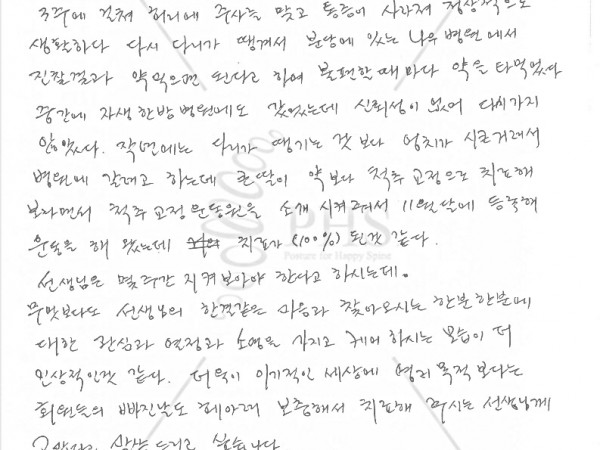 3주에 걸쳐 허리에 주사를 맞고 통증이 사라져 정상적으로
생활하다 다시 다리가 땡겨서 분당에 있는 나우병원에서
진찰결과 약먹으면 된다고 하여 불편한때마다 약을 타먹었다
중간에 자생한방병원에도 갔었는데 신뢰성이 없어 다시가지
않았다. 작년에는 다리가 땡기는 것 보다 엉치가 시큰거려서
병원에 갈려고 하는데 큰딸이 약보다 척추교정으로 치료해
보라면서 척추교정운동원을 소개 시켜주어서 11월달에 등록해
운동을 해 왔는데 치료가 (100%) 된것 같다.
선생님은 몇주간 지켜보아야 한다고 하시는데.
무엇보다도 선생님의 한결같은 마음과 찾아오시는 한분한분에
대한 관심과 열정과 소명을 가지고 케어 하시는 모습이 더
인상적인것 같다. 더욱이 이기적인 세상에 영리 목적 보다는
회원들의 빠진날도 헤아려 보충해서 치료해 주시는 선생님께
감사드리고 싶습니다
PHS
Posture for Happy Spine